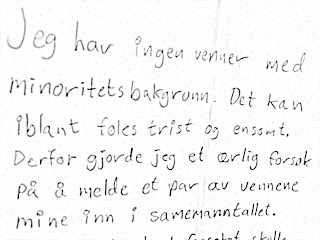 Jeg har ingen venner med
minoritetsbakgrunn. Det kan
iblant føles trist og ensomt.
Derfor gjorde jeg et ærlig forsøk
på å melde et par av vennene
mine inn i samemanntallet.